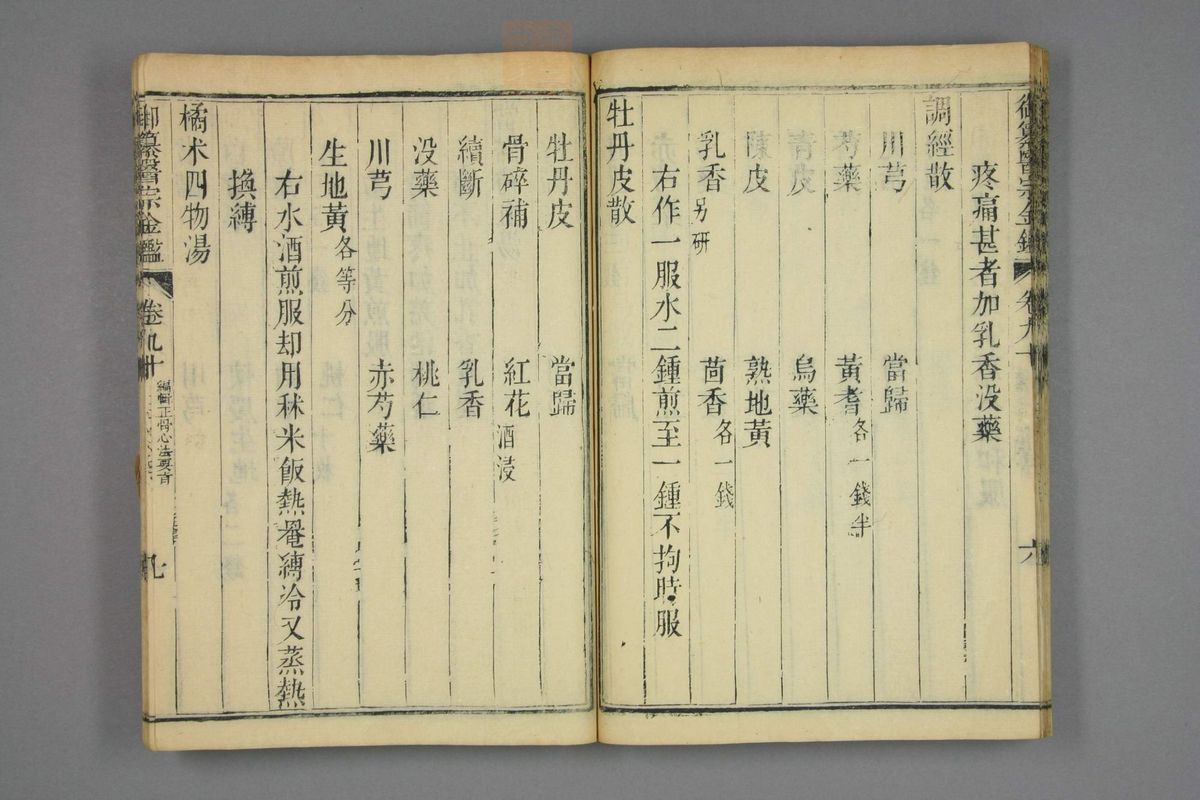 御纂醫宗金鑑 卷九十 六
疼痛甚者加乳香没藥
調經散
川芎 當歸
芍藥 黃耆各一錢半
青皮 烏藥
陳皮 熟地黃
乳香另研 茴香各一錢
右作一服水二鍾煎至一鍾不拘時服
牡丹皮散
牡丹皮 當歸
骨碎補 紅花酒浸
續斷 乳香
没藥 桃仁
川芎 赤芍藥
生地黃各等分
右水酒煎服却用秫米飯熱罨縛冷又蒸熱
換縛
橘术四物湯
御纂醫宗金鑑 卷九十 編輯正骨心法要旨 九